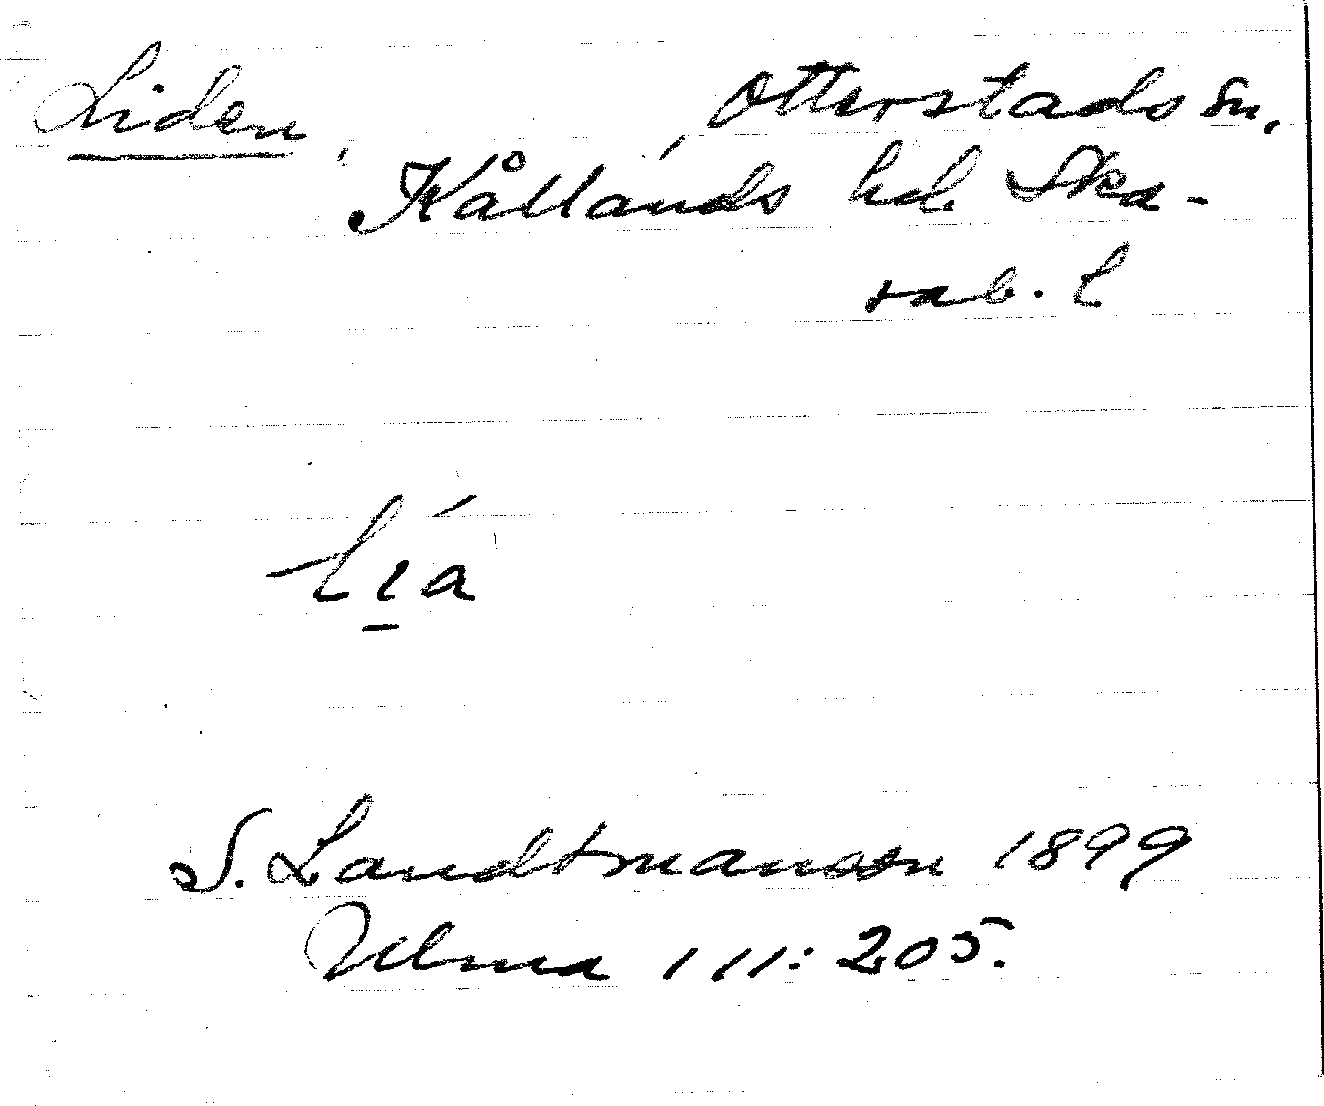 Liden, Otterstads sn,
Kållands hd. Ska-
rab. l
lı̱á
S. Landtmanson 1899
Ulma 111:205.